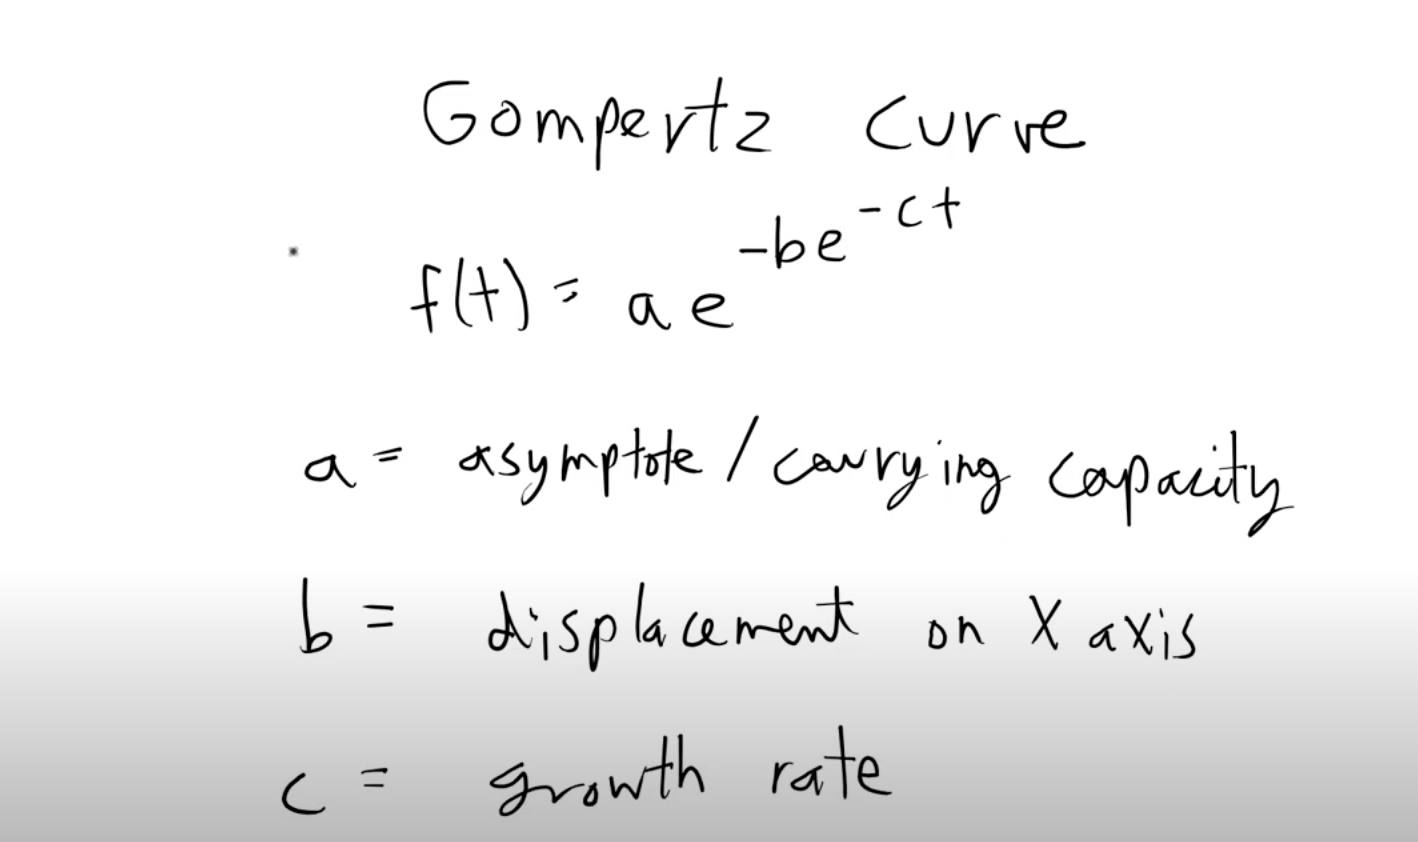 Gompertz Curve
f(t) = ae^{-be^{-ct}}
a = asymptote / carrying capacity
b = displacement on X axis
c = growth rate